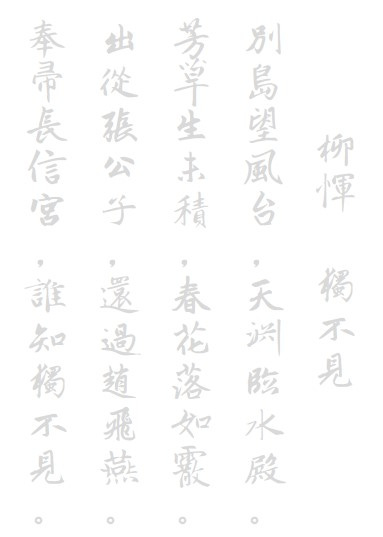 柳惲
獨不見
別島望風台，天淵臨水殿。
芳草生未積，春花落如霰。
出從張公子，還過趙飛燕。
奉帚長信宮，誰知獨不見。